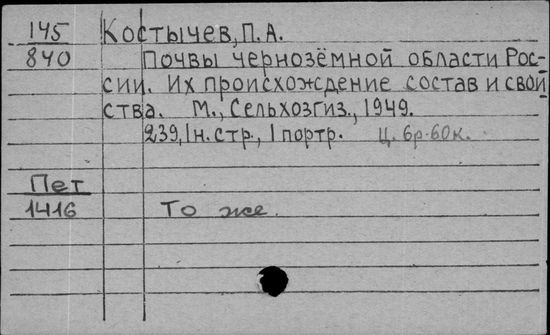 145 Костычев, П. А.
840 Почвы чернозёмной области Рос-
сии. Их происхождение состав и свой
ства. М., Сельхозгиз., 1949.
239, 1 н. стр., 1 портр. Ц. 6р-60к.
Пет
1416 То же.